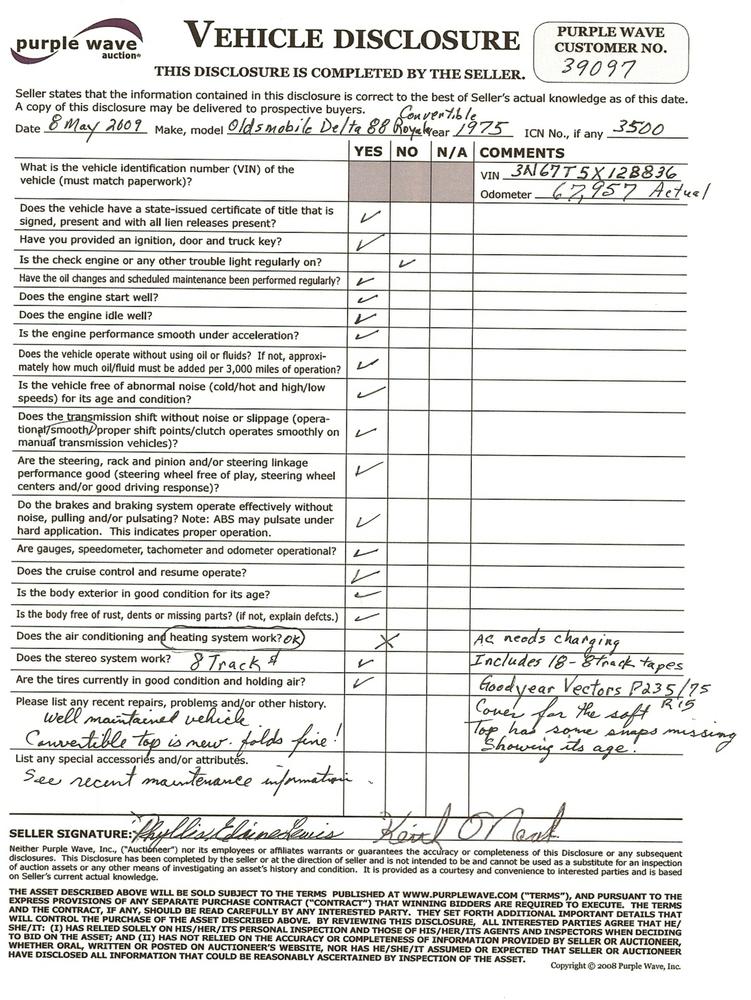 purple wave
auction®
VEHICLE DISCLOSURE
PURPLE WAVE
CUSTOMER NO.
39097
THIS DISCLOSURE IS COMPLETED BY THE SELLER.
Seller states that the information contained in this disclosure is correct to the best of Seller's actual knowledge as of this date.
A copy of this disclosure may be delivered to prospective buyers.
Convertible
Date 8 May 2009 Make, model Oldsmobile Delta 88 Royale Year 1975 ICN No., if any 3500
YES NO N/A COMMENTS
What is the vehicle identification number (VIN) of the
vehicle (must match paperwork)?
VIN 3N67T5X128836
Odometer 67,957 Actual
Does the vehicle have a state-issued certificate of title that is
signed, present and with all lien releases present? ✓
Have you provided an ignition, door and truck key? ✓
Is the check engine or any other trouble light regularly on? ✓
Have the oil changes and scheduled maintenance been performed regularly? ✓
Does the engine start well? ✓
Does the engine idle well? ✓
Is the engine performance smooth under acceleration? ✓
Does the vehicle operate without using oil or fluids? If not, approxi-
mately how much oil/fluid must be added per 3,000 miles of operation? ✓
Is the vehicle free of abnormal noise (cold/hot and high/low
speeds) for its age and condition? ✓
Does the transmission shift without noise or slippage (opera-
tional/smooth/proper shift points/clutch operates smoothly on
manual transmission vehicles)? ✓
Are the steering, rack and pinion and/or steering linkage
performance good (steering wheel free of play, steering wheel
centers and/or good driving response)? ✓
Do the brakes and braking system operate effectively without
noise, pulling and/or pulsating? Note: ABS may pulsate under
hard application. This indicates proper operation. ✓
Are gauges, speedometer, tachometer and odometer operational? ✓
Does the cruise control and resume operate? ✓
Is the body exterior in good condition for its age? ✓
Is the body free of rust, dents or missing parts? (if not, explain defcts.) ✓
Does the air conditioning and heating system work? OK X AC needs charging
Does the stereo system work? 8 Track ✓ Includes 18-8track tapes
Are the tires currently in good condition and holding air? ✓ Goodyear Vectors P235/75
R15
Please list any recent repairs, problems and/or other history.
Well maintained vehicle
Convertible top is new. folds fine!
Cover for the soft
Top has some snaps missing
Showing its age.
List any special accessories and/or attributes.
See recent maintenance information.
SELLER SIGNATURE: Phyllis Elaine Lewis
Neither Purple Wave, Inc., ("Auctioneer") nor its employees or affiliates warrants or guarantees the accuracy or completeness of this Disclosure or any subsequent
disclosures. This Disclosure has been completed by the seller or at the direction of seller and is not intended to be and cannot be used as a substitute for an inspection
of auction assets or any other means of investigating an asset's history and condition. It is provided as a courtesy and convenience to interested parties and is based
on Seller's current actual knowledge.
THE ASSET DESCRIBED ABOVE WILL BE SOLD SUBJECT TO THE TERMS PUBLISHED AT WWW.PURPLEWAVE.COM ("TERMS"), AND PURSUANT TO THE
EXPRESS PROVISIONS OF ANY SEPARATE PURCHASE CONTRACT ("CONTRACT") THAT WINNING BIDDERS ARE REQUIRED TO EXECUTE. THE TERMS
AND THE CONTRACT, IF ANY, SHOULD BE READ CAREFULLY BY ANY INTERESTED PARTY. THEY SET FORTH ADDITIONAL IMPORTANT DETAILS THAT
WILL CONTROL THE PURCHASE OF THE ASSET DESCRIBED ABOVE. BY REVIEWING THIS DISCLOSURE, ALL INTERESTED PARTIES AGREE THAT HE/
SHE/IT: (I) HAS RELIED SOLELY ON HIS/HER/ITS PERSONAL INSPECTION AND THOSE OF HIS/HER/ITS AGENTS AND INSPECTORS WHEN DECIDING
TO BID ON THE ASSET; AND (II) HAS NOT RELIED ON THE ACCURACY OR COMPLETENESS OF INFORMATION PROVIDED BY SELLER OR AUCTIONEER,
WHETHER ORAL, WRITTEN OR POSTED ON AUCTIONEER'S WEBSITE, NOR HAS HE/SHE/IT ASSUMED OR EXPECTED THAT SELLER OR AUCTIONEER
HAVE DISCLOSED ALL INFORMATION THAT COULD BE REASONABLY ASCERTAINED BY INSPECTION OF THE ASSET.
Copyright © 2008 Purple Wave, Inc.